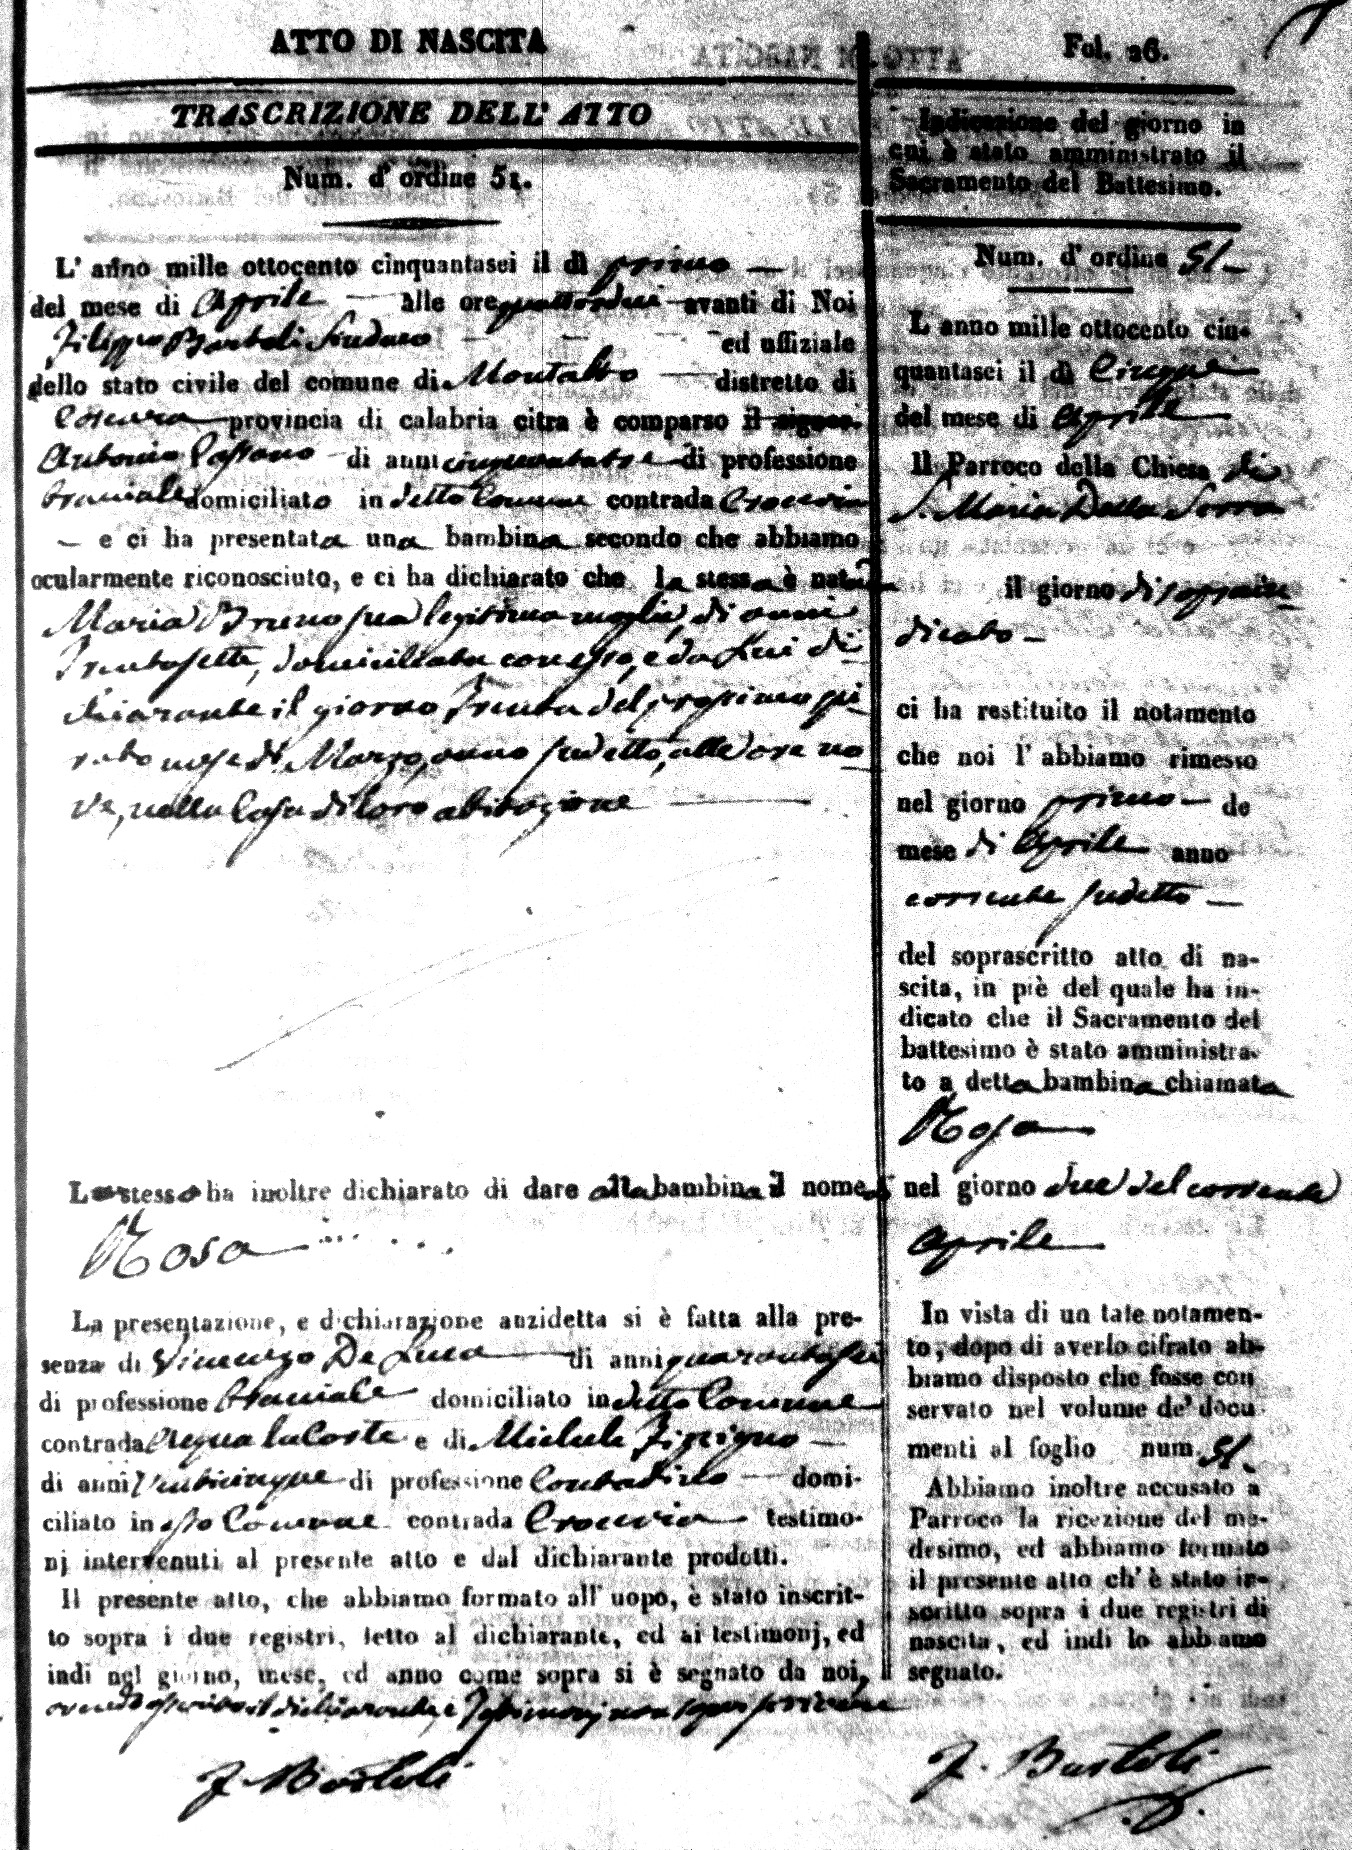 ATTO DI NASCITA
TRASCRIZIONE DELL' ATTO
Num. d' ordine 51.
L' anno mille ottocento cinquantasei il dì primo —
del mese di Aprile — alle ore quattordeci avanti di Noi
Filippo Bartoli Sindaco — — — ed uffiziale
dello stato civile del comune di Montalto — distretto di
Cosenza provincia di calabria citra è comparso il signor
Antonio Passano — di anni cinquantatre di professione
braciale domiciliato in detto Comune contrada Crocevia
— e ci ha presentata una bambina secondo che abbiamo
ocularmente riconosciuto, e ci ha dichiarato che la stessa è nata da
Maria Bruno sua legittima moglie, di anni
Trentasette, domiciliata con esso, e da Lui di
chiarante il giorno Trenta del prossimo spi
rato mese di Marzo, anno sudetto, alle ore no
ve, nella Casa di loro abitazione —
Lo stesso ha inoltre dichiarato di dare alla bambina il nome di
Rosa — ... ...
La presentazione, e dichiarazione anzidetta si è fatta alla pre-
senza di Vincenzo De Luca — di anni quarantasei
di professione braciale domiciliato in detto Comune
contrada Acqua la Costa e di Michele —
di anni Venticinque di professione Contadino — domi-
ciliato in esso Comune contrada Crocevia testimo-
nj intervenuti al presente atto e dal dichiarante prodotti.
Il presente atto, che abbiamo formato all' uopo, è stato inscrit-
to sopra i due registri, letto al dichiarante, ed ai testimonj, ed
indi nel giorno, mese, ed anno come sopra si è segnato da noi,
avendo asserito il dichiarante, e Testimonj non saper scrivere
F. Bartoli
Fol. 26.
Indicazione del giorno in
cui è stato amministrato il
Sacramento del Battesimo.
Num. d' ordine 51 —
L' anno mille ottocento cin-
quantasei il dì Cinque
del mese di Aprile
Il Parroco della Chiesa di
S. Maria Della Serra
il giorno di sopra in
dicato —
ci ha restituito il notamento
che noi l' abbiamo rimesso
nel giorno primo — de
mese di Aprile anno
corrente sudetto —
del soprascritto atto di na-
scita, in piè del quale ha in-
dicato che il Sacramento del
battesimo è stato amministra-
to a detta bambina chiamata
Rosa —
nel giorno due del corrente
Aprile —
In vista di un tale notamen-
to, dopo di averlo cifrato ab-
biamo disposto che fosse con
servato nel volume de' docu-
menti al foglio num. 51.
Abbiamo inoltre accusato a
Parroco la ricezione del me-
desimo, ed abbiamo formato
il presente atto ch' è stato in-
scritto sopra i due registri di
nascita, ed indi lo abbiamo
segnato.
F. Bartoli